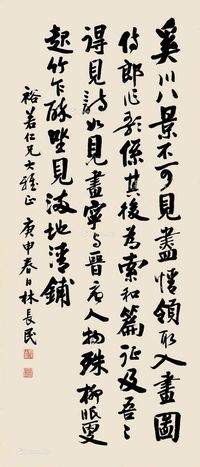 奚川八景不可見盡情領取入畫圖
侍郎作歌係其後為索和篇証及吾〻
得見詩如見畫寧与晉唐人物殊柳眠更
起竹乍酥坐見滿地清鋪
裕若仁兄大雅正 庚申春日林長民